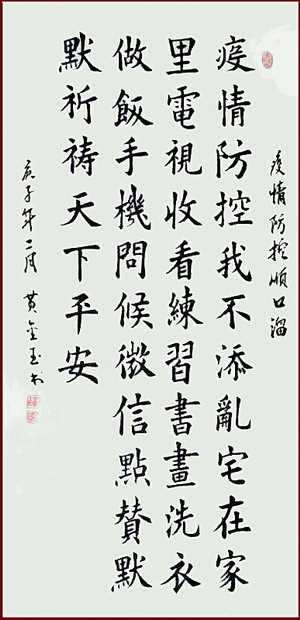 疫情防控順口溜
疫情防控我不添亂宅在家
里電視收看練習書畫洗衣
做飯手機問候微信點賛默
默祈祷天下平安
庚子年二月 黄金玉书